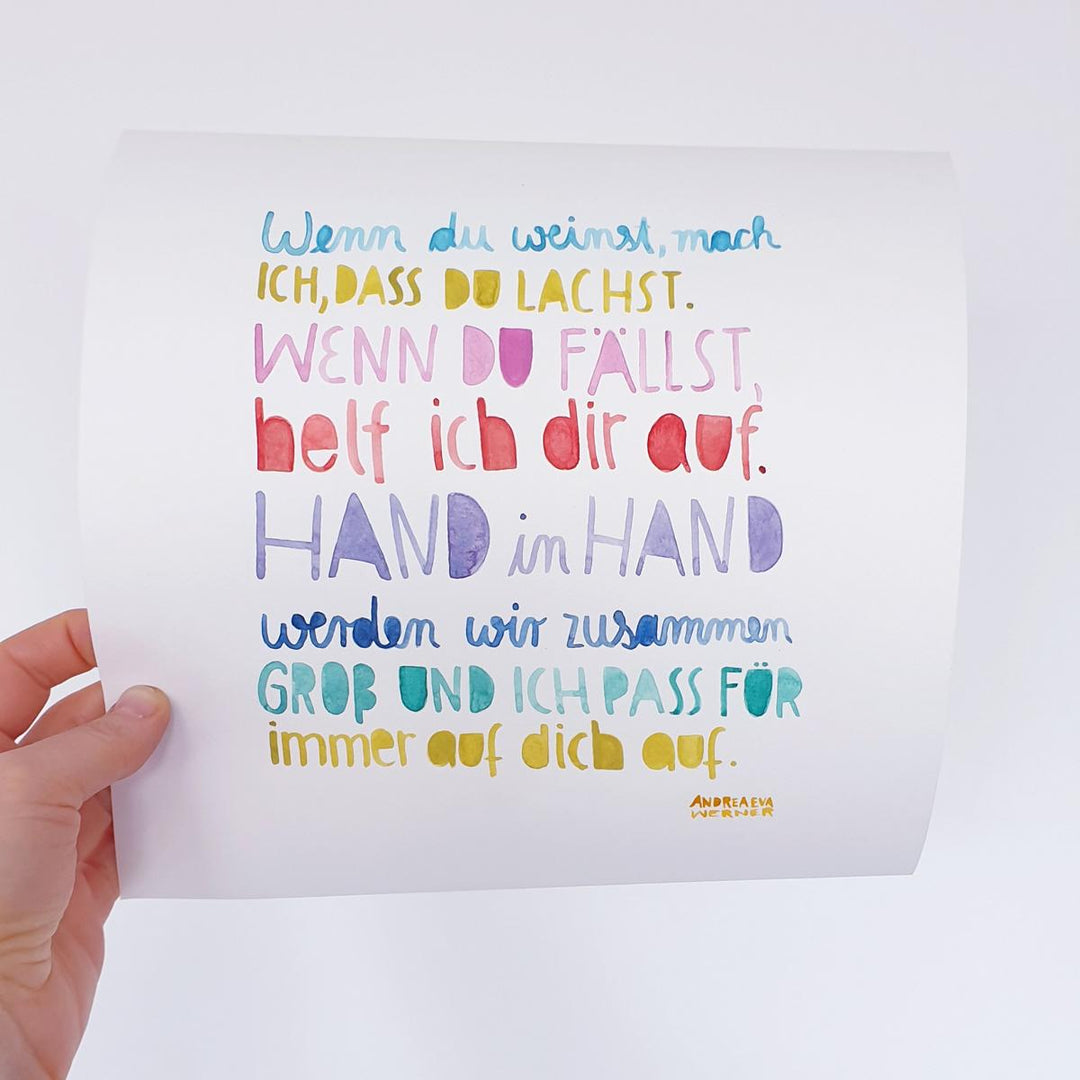 Wenn du weinst, mach
ICH, DASS DU LACHST.
WENN DU FÄLLST,
helf ich dir auf.
HAND in HAND
werden wir zusammen
GROß UND ICH PASS FÜR
immer auf dich auf.
ANDREA EVA
WERNER